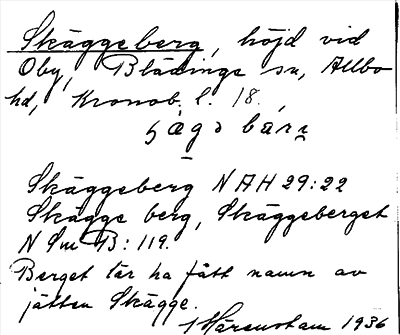 Skäggeberg, höjd vid
Oby, Blädinge sn, Allbo
hd, Kronob. l. 18.
bärɳ
Skäggeberg NAH 29:22
Skägge berg, Skäggeberget
N Sm B: 119.
Berget lär ha fått namn av
jätten Skägge.
Härenstam 1936